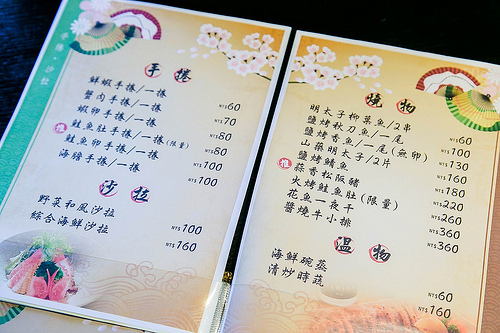 手捲·沙拉
手捲
鮮蝦手捲/一捲 NT$60
蟹肉手捲/一捲 NT$70
蝦卵手捲/一捲 NT$80
推 鮭魚肚手捲/一捲(限量) NT$80
鮭魚卵手捲/一捲 NT$100
海膽手捲/一捲 NT$100
沙拉
野菜和風沙拉 NT$100
綜合海鮮沙拉 NT$160
燒物
明太子柳葉魚/2串 NT$60
鹽烤秋刀魚/一尾 NT$100
鹽烤香魚/一尾(無卵) NT$130
山藥明太子/2片 NT$160
鹽烤鯖魚 NT$180
推 蒜香松阪豬 NT$220
火烤鮭魚肚(限量) NT$260
花魚一夜干 NT$360
醬燒牛小排 NT$360
溫物
海鮮碗蒸 NT$60
清炒時蔬 NT$160